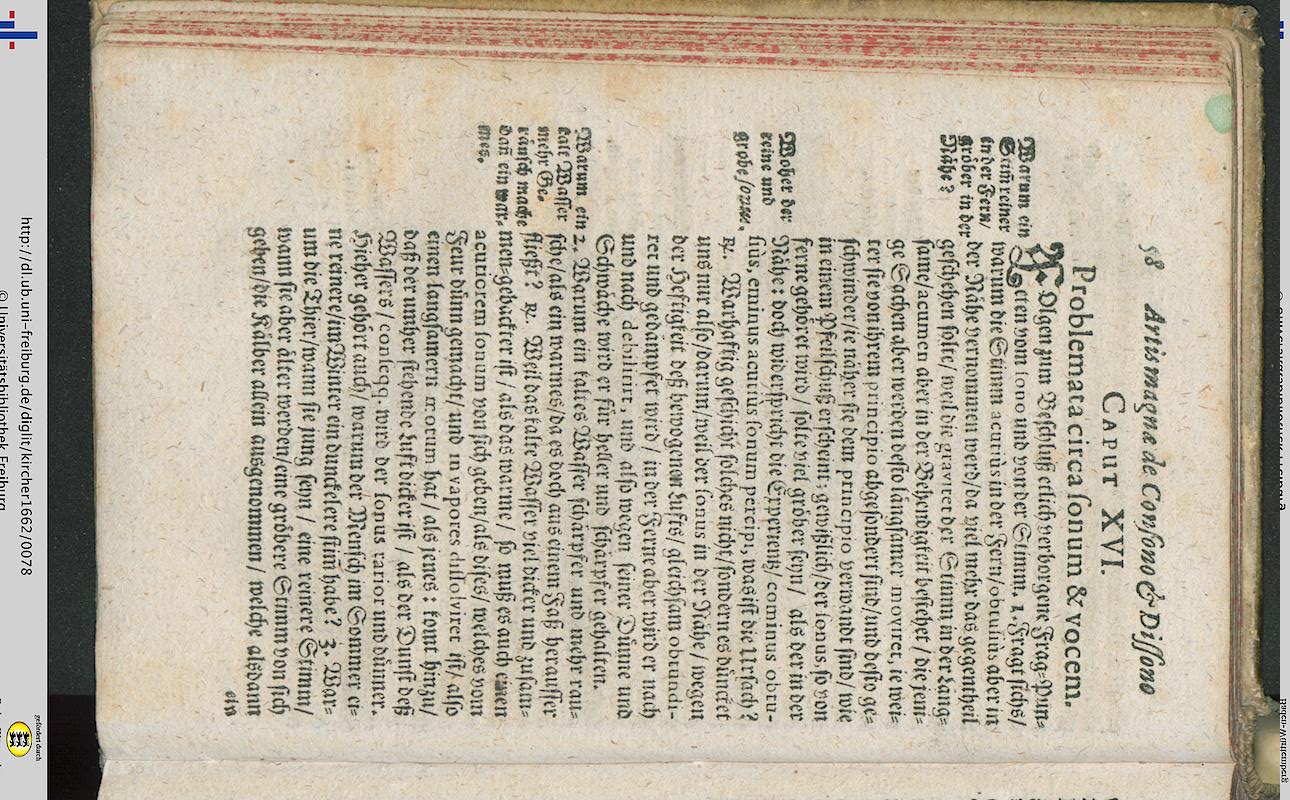 58 Artis magnæ de Consono & Dissono
CAPUT XVI.
Problemata circa sonum & vocem.
Warum ein
Stim̃ reiner
in der Fern/
gröber in der
Nähe?
FOlgen zum Beschluß etlich verborgene Frag-Pun-
cten vom sono und von der Stimm. 1. Fragt sichs/
warum die Stimm acutiùs in der Fern/ obtusiùs aber in
der Nähe vernommen werd/ da viel mehr das gegentheil
geschehen solte/ weil die gravitet der Stimm in der Lang-
same/ acumen aber in der Behendigkeit bestehet/ die jeni-
ge Sachen aber werden desto langsamer moviret, ie wei-
ter sie von ihrem principio abgesondert sind/ und desto ge-
schwinder/ ie näher sie dem principio verwandt sind/ wie
in einem Pfeilschuß erscheint; gewißlich/ der sonus, so von
ferne gehöret wird/ solte viel gröber seyn/ als der in der
Nähe: doch widerspricht die Experientz/ cominus obtu-
siùs, eminus acutius sonum percipi, was ist die Ursach?
Woher der
reine und
grobe sonus.
℞. Warhaftig geschicht solches nicht/ sondern es düncket
uns nur also/ darum/ weil der sonus in der Nähe/ wegen
der Heftigkeit deß bewogenen Lufts/ gleichsam obtundi-
ret und gedämpfet wird/ in der Ferne aber wird er nach
und nach debilitirt, und also wegen seiner Dünne und
Schwäche wird er für heller und schärpfer gehalten.
Warum ein
kalt Wasser
mehr Ge-
räusch mache
dañ ein war-
mes.
2. Warum ein kaltes Wasser schärpfer und mehr rau-
sche/ als ein warmes/ da es doch aus einem Faß herausser
fliest? ℞. Weil das kalte Wasser viel dicker und zusam-
men-gebackter ist/ als das warme/ so muß es auch einen
acutiorem sonum von sich geben/ als dises/ welches vom
Feur dünn gemacht/ und in vapores dissolviret ist/ also
einen langsamern motum hat/ als jenes: komt hinzu/
daß der umher stehende Luft dicker ist/ als der Dunst deß
Wassers/ conseqq. wird der sonus rarior und dünner.
Hieher gehört auch/ warum der Mensch im Sommer ei-
ne reinere/ im Winter ein dunckelere stim̃ habe? 3. War-
um die Thier/ wann sie jung seyn/ eine reinere Stimm/
wann sie aber älter werden/ eine gröbere Stimm von sich
geben/ die Kälber allein ausgenommen/ welche alsdann
ein
http://dl.ub.uni-freiburg.de/diglit/kircher1662/0078
© Universitätsbibliothek Freiburg
gefördert durch